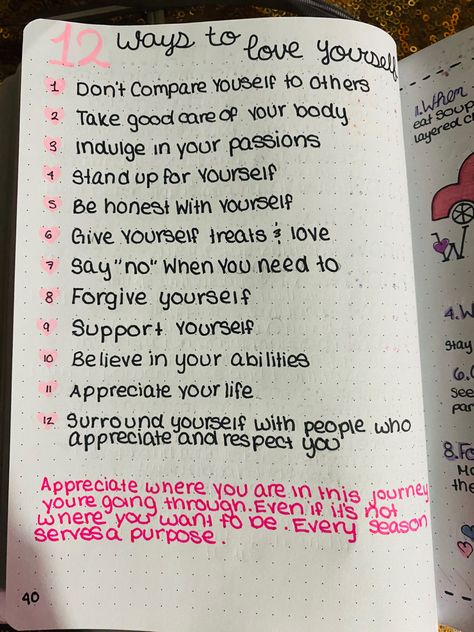 12 ways to love yourself
1 Don't Compare Youself to others
2 Take good care of your body
3 Indulge in your passions
4 Stand up for yourself
5 Be honest with yourself
6 Give yourself treats & love
7 Say "no" When you need to
8 Forgive yourself
9 Support yourself
10 Believe in your abilities
11 Appreciate your life
12 Surround yourself with people who
appreciate and respect you
Appreciate where you are in this journey
youre going through. Even if it's not
where you want to be. Every season
serves a purpose.
40
1. When
eat soup
layered
4. W
Stay
6.
See
par
8. Fo
the